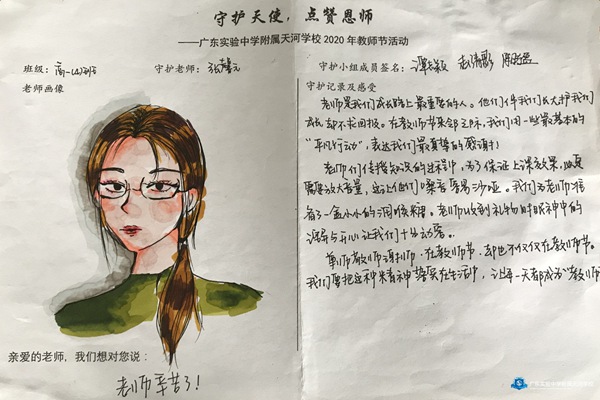 守护天使，点赞恩师
——广东实验中学附属天河学校 2020 年教师节活动
班级：高一
守护老师：张
守护小组成员签名：
老师画像
守护记录及感受
老师是我们成长路上最重要的人。他们伴我们长大护我们
成长却不求回报。在教师节来临之际，我们用一些最基本的
“平凡行动”，表达我们最真挚的感谢！
老师们传授知识的过程中，为了保证上课效果，必要
需要放大音量，这让他们的嗓音容易沙哑。我们为老师准
备了一盒小小的润喉糖。老师收到礼物时眼神中的
与开心让我们十分动容。
教师节，却也不仅仅在教师节。
我们要把这种精神落实在生活中，让每一天都成为“教师
亲爱的老师，我们想对您说：
老师辛苦了！